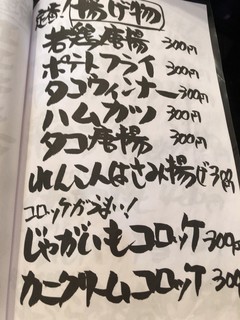 定番！揚げ物
若鶏唐揚 300円
ポテトフライ 300円
タコウィンナー 300円
ハムカツ 300円
タコ唐揚 300円
れんこんはさみ揚げ 300円
コロッケがうまい！
じゃがいもコロッケ 300円
カニクリームコロッケ 300